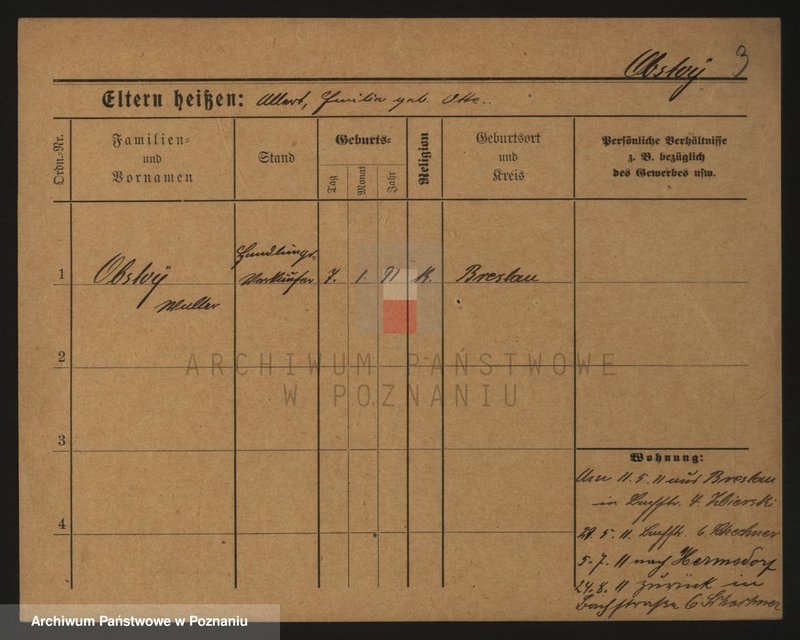 Obstoÿ 3
Eltern heißen: Albert, Emilie geb. Otte..
Ordn.-Nr.
Familien=
und
Vornamen
Stand
Geburts=
Tag
Monat
Jahr
Religion
Geburtsort
und
Kreis
Persönliche Verhältnisse
z. B. bezüglich
des Gewerbes usw.
1 Obstoÿ Handlungs-
Verkäufer 7. 1. 91 K. Breslau
2
ARCHIWUM PAŃSTWOWE
W POZNANIU
3
4
Wohnung:
11.5.11 aus Breslau
in Bachstr. 4.
29.5.11. Bachstr. 6
5.7.11 nach Hermsdorf
24.8.11 zurück in
Bachstraße 6
Archiwum Państwowe w Poznaniu